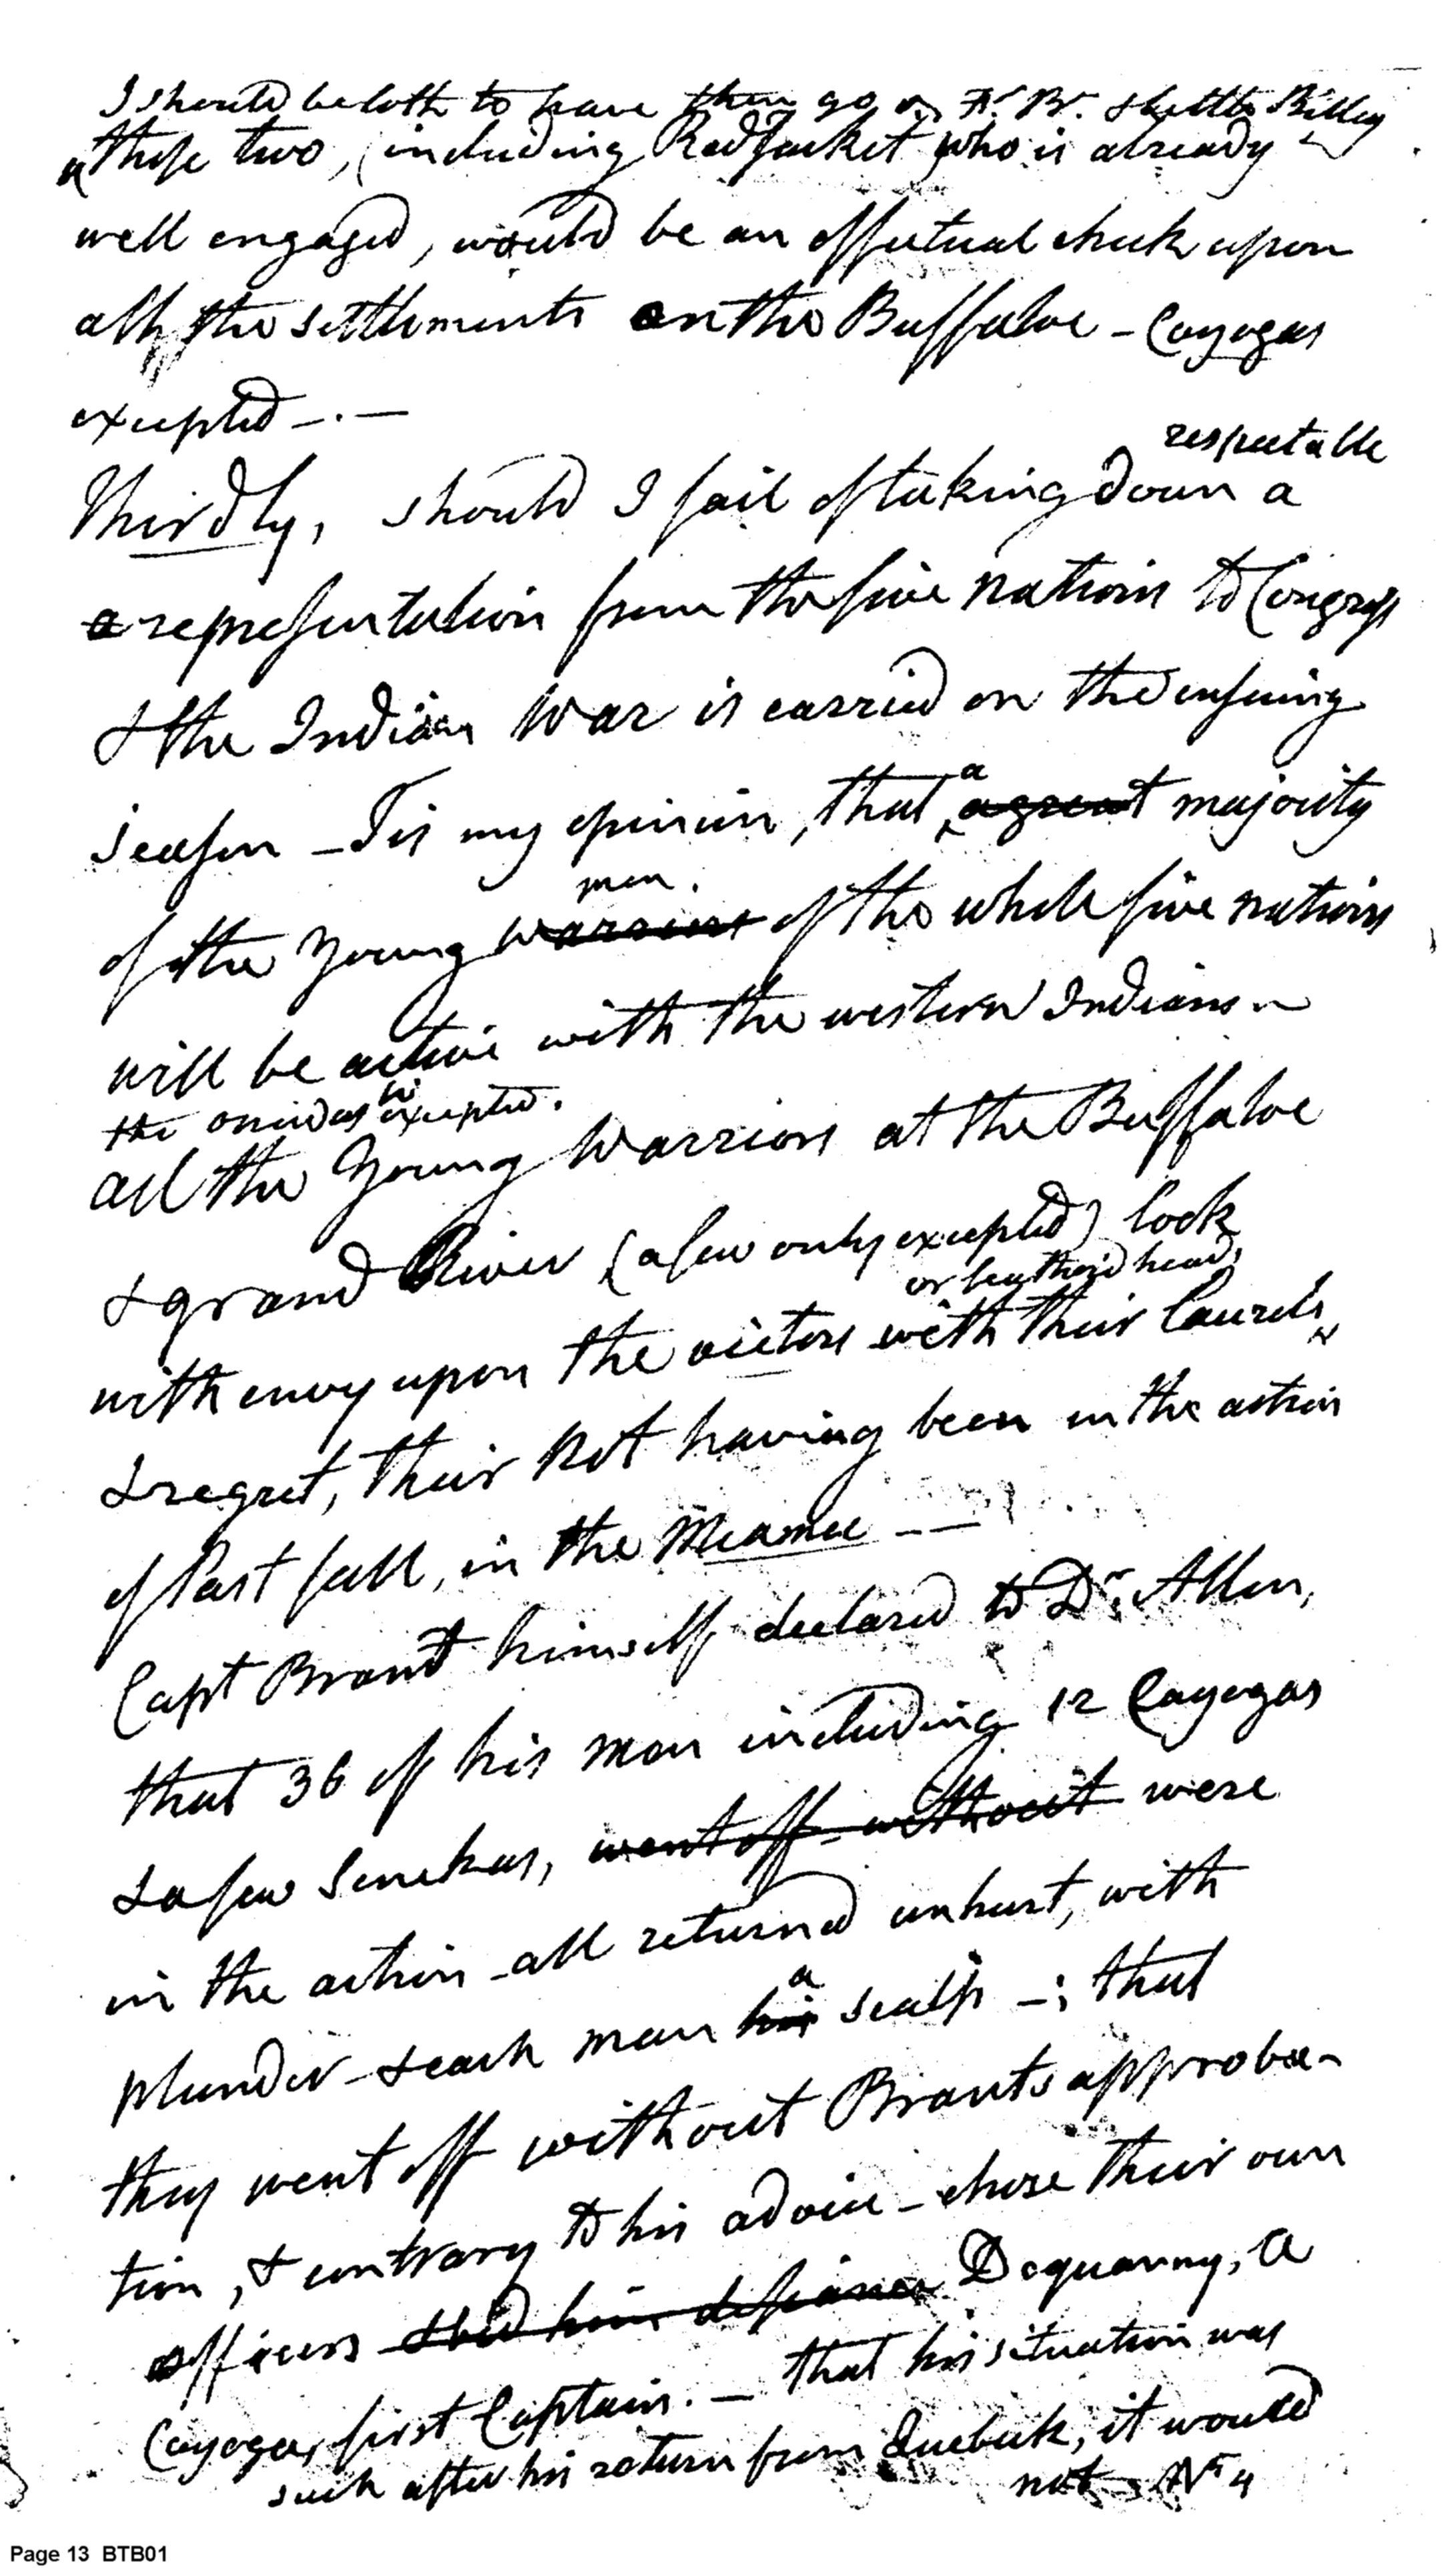 I should be loth to have them go on Fr. Br. & little Billey
those two, (including Red Jacket) who is already
well engaged, would be an effectual check upon
all, the settlements on the Buffaloe - Cayogas
excepted -. -
respectable
Thirdly, should I fail of taking down a
a representation from the five nations to Congress
& the Indian War is carried on the ensuing
season - Tis my opinion, that a
a great majority
men.
of the Young warriors of the whole five nations
will be active with the western Indians -
the oneidas excepted.
all the Young Warriors at the Buffaloe
& grand River (a few only excepted) look
or leathered heads
with envy upon the victors with their Laurels
& regret, their not having been in the action
of last fall, in the Meamee - -
Capt Brant himself declared to Dr. Allen,
that 36 of his men including 12 Cayogas
& a few Senekas, went off without were
in the action - all returned unhurt, with
a
plunder - & each man his scalp -; that
they went off without Brants approba-
tion, & contrary to his advice - chose their own
officers & bid him defiance Dequanny, a
Cayoga, first Captain. - that his situation was
such after his return from Quebeck, it would
not - No 4
Page 13 BTB01